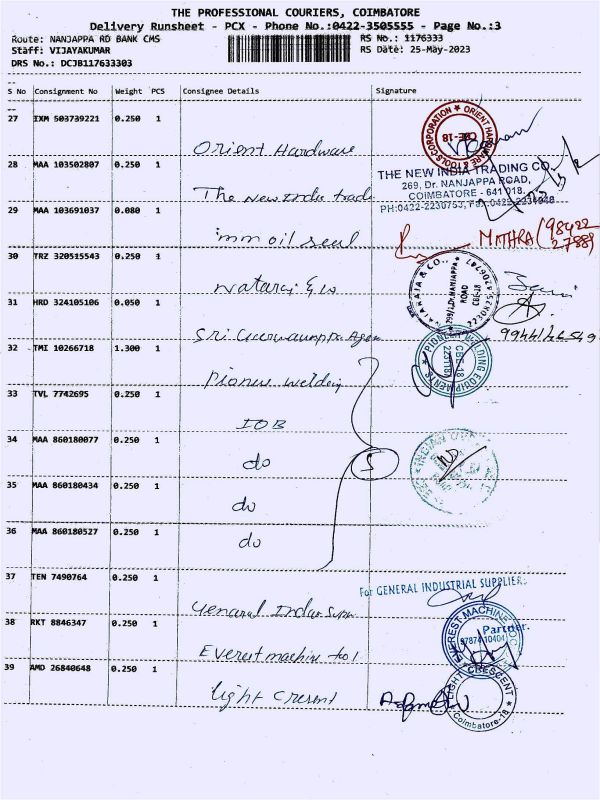 THE PROFESSIONAL COURIERS, COIMBATORE
Delivery Runsheet - PCX - Phone No.:0422-3505555 - Page No.:3
Route: NANJAPPA RD BANK CMS
RS No.: 1176333
Staff: VIJAYAKUMAR
RS Date: 25-May-2023
DRS No.: DCJB117633303
S No Consignment No Weight PCS Consignee Details Signature
27 IXM 503739221 0.250 1
Orient Hardware
ORIENT HARDWARE & TOOLS CORPORATION
CBE-18
28 MAA 103502807 0.250 1
The New India trade
THE NEW INDIA TRADING CO.
269, Dr. NANJAPPA ROAD,
COIMBATORE - 641 018.
PH:0422-2230753, Fax:0422-2234948
29 MAA 103691037 0.080 1
imm oil seal
MITHRA (98422
27889)
30 TRZ 320515543 0.250 1
Nataraj & Co
NATARAJA & CO.,
299/1,Dr.NANJAPPA
ROAD
CBE-18
31 HRD 324105106 0.050 1
Sri Guruvayurappa Agen
32 TMI 10266718 1.300 1
Pioneer Welding
PIONEER WELDING EQUIPMENTS
CBE-18
33 TVL 7742695 0.250 1
IOB
34 MAA 860180077 0.250 1
do
5
35 MAA 860180434 0.250 1
do
36 MAA 860180527 0.250 1
do
37 TEN 7490764 0.250 1
General Indus Supp
For GENERAL INDUSTRIAL SUPPLIERS
Partner.
38 RKT 8846347 0.250 1
Everest machine tool
EVEREST MACHINE TOOL
39 AMD 26840648 0.250 1
Light Cresent
LIGHT CRESCENT
Coimbatore-18